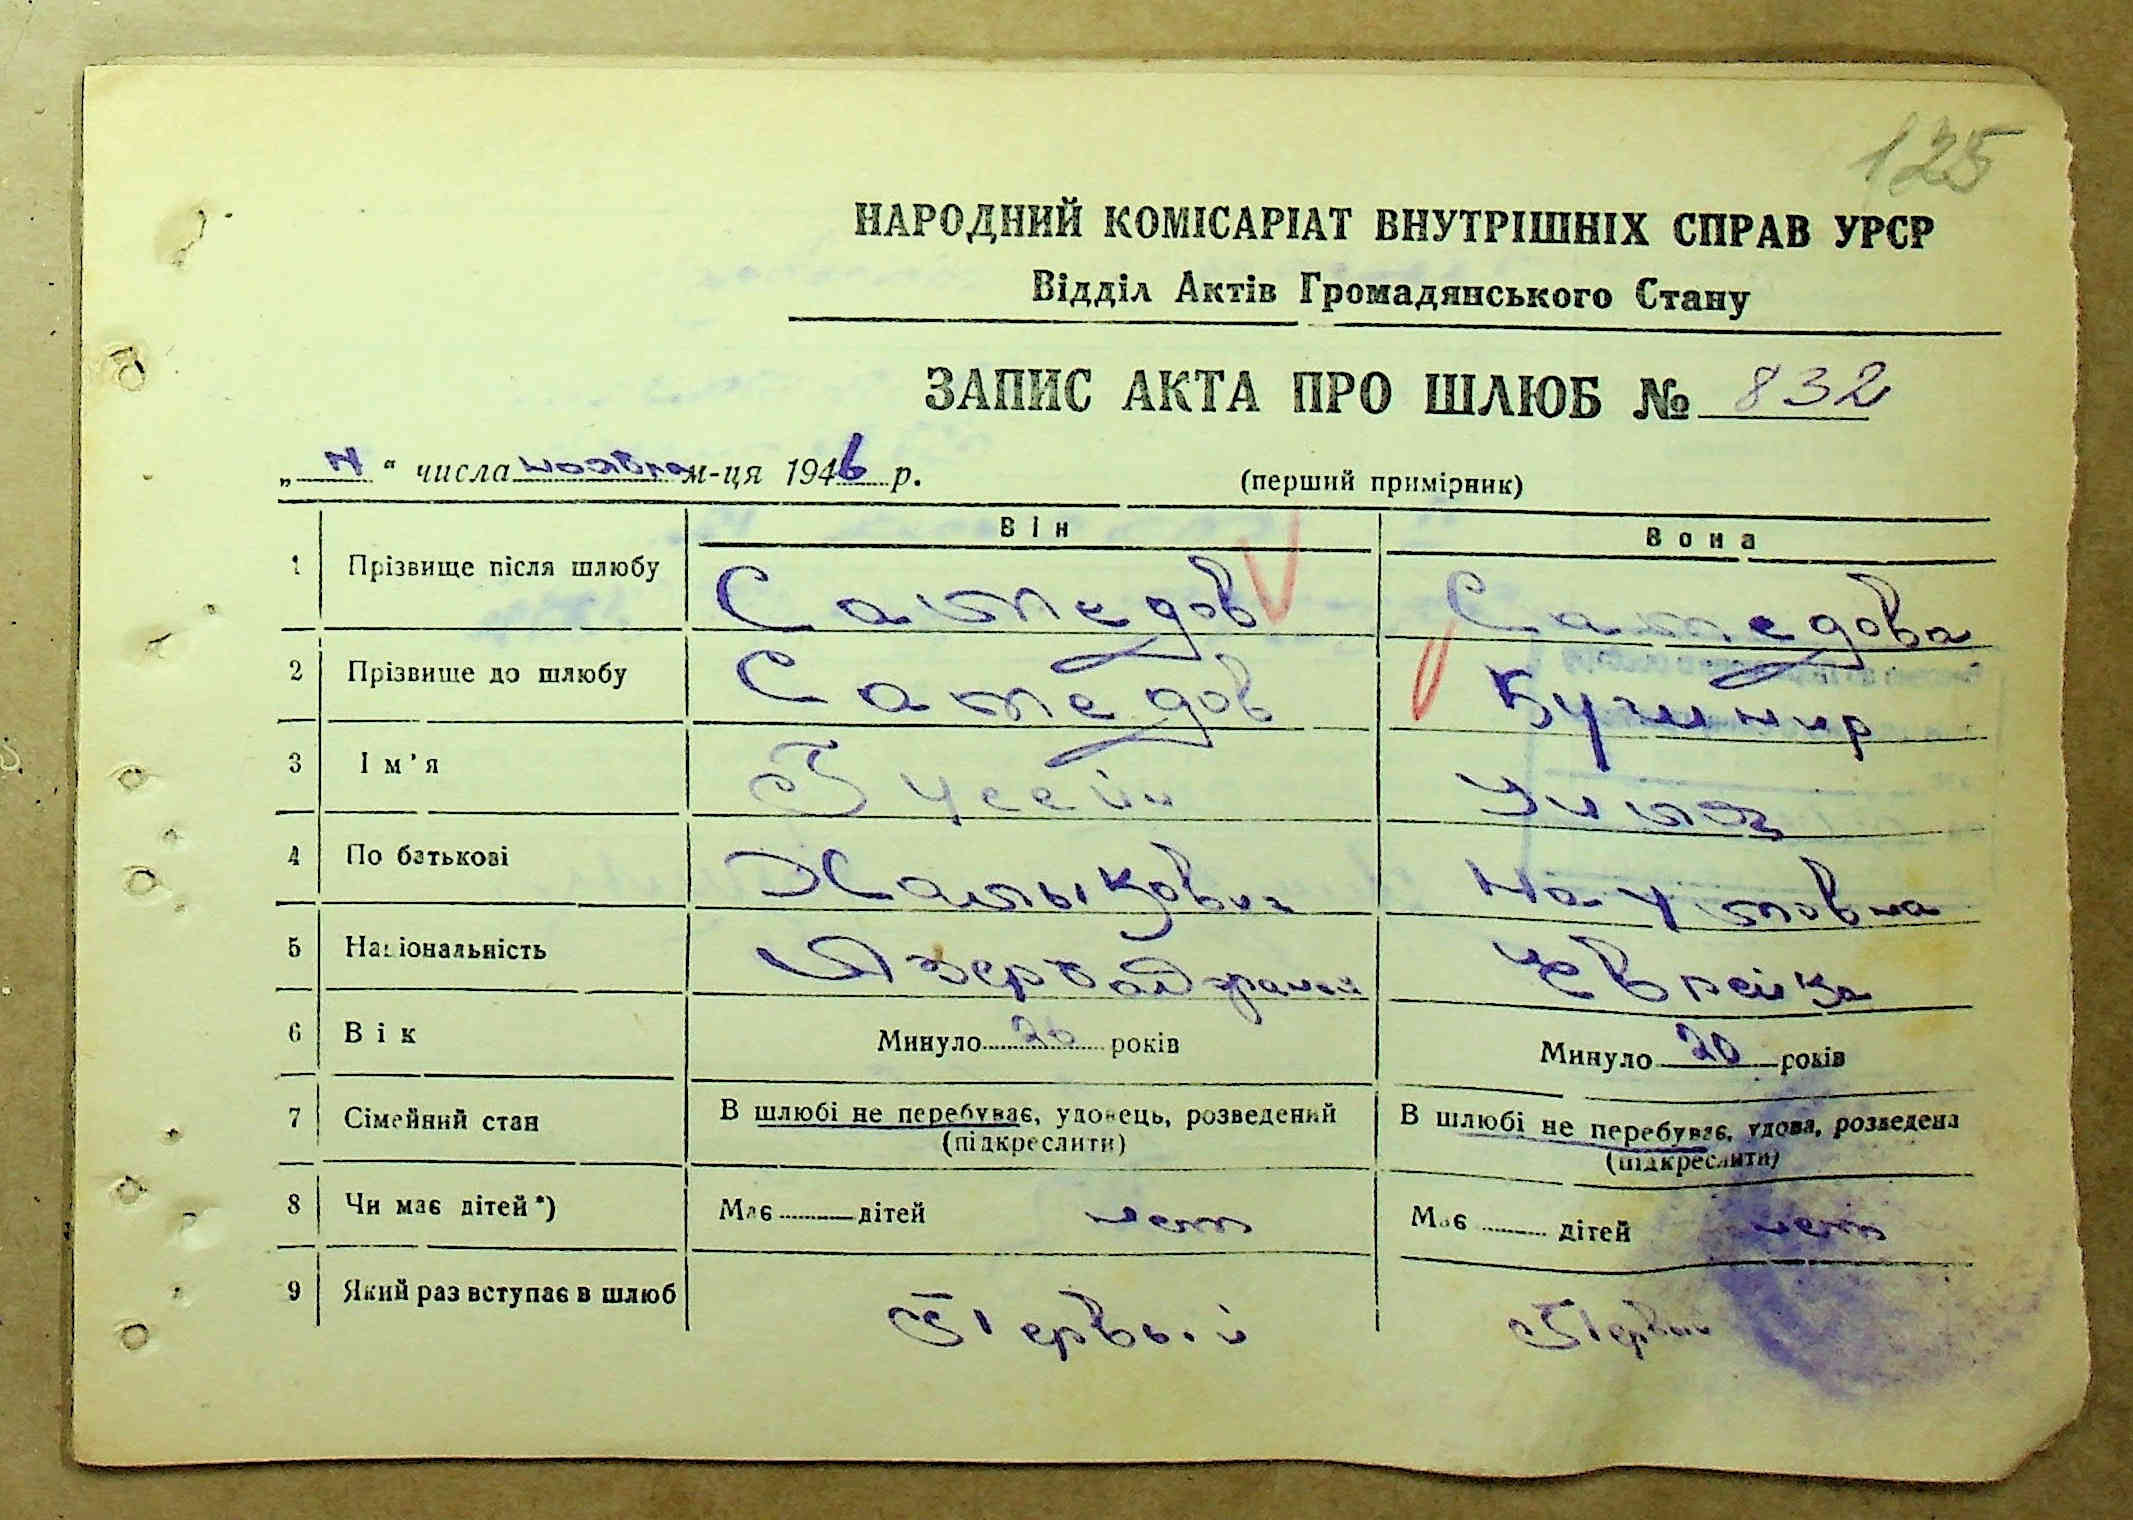 125
НАРОДНИЙ КОМІСАРІАТ ВНУТРІШНІХ СПРАВ УРСР
Відділ Актів Громадянського Стану
ЗАПИС АКТА ПРО ШЛЮБ № 832
„ “ числа ноября м-ця 1946 р. (перший примірник)
Він Вона
1 Прізвище після шлюбу Самедов Самедова
2 Прізвище до шлюбу Самедов Кушнир
3 Ім’я Гусейн
4 По батькові Халыкович Наумовна
5 Національність Азербайджанец Еврейка
6 Вік Минуло 26 років Минуло 20 років
7 Сімейний стан В шлюбі не перебуває, удовець, розведений В шлюбі не перебуває, удова, розведена
(підкреслити) (підкреслити)
8 Чи має дітей*) Має дітей нет Має дітей нет
9 Який раз вступає в шлюб Первый Первый